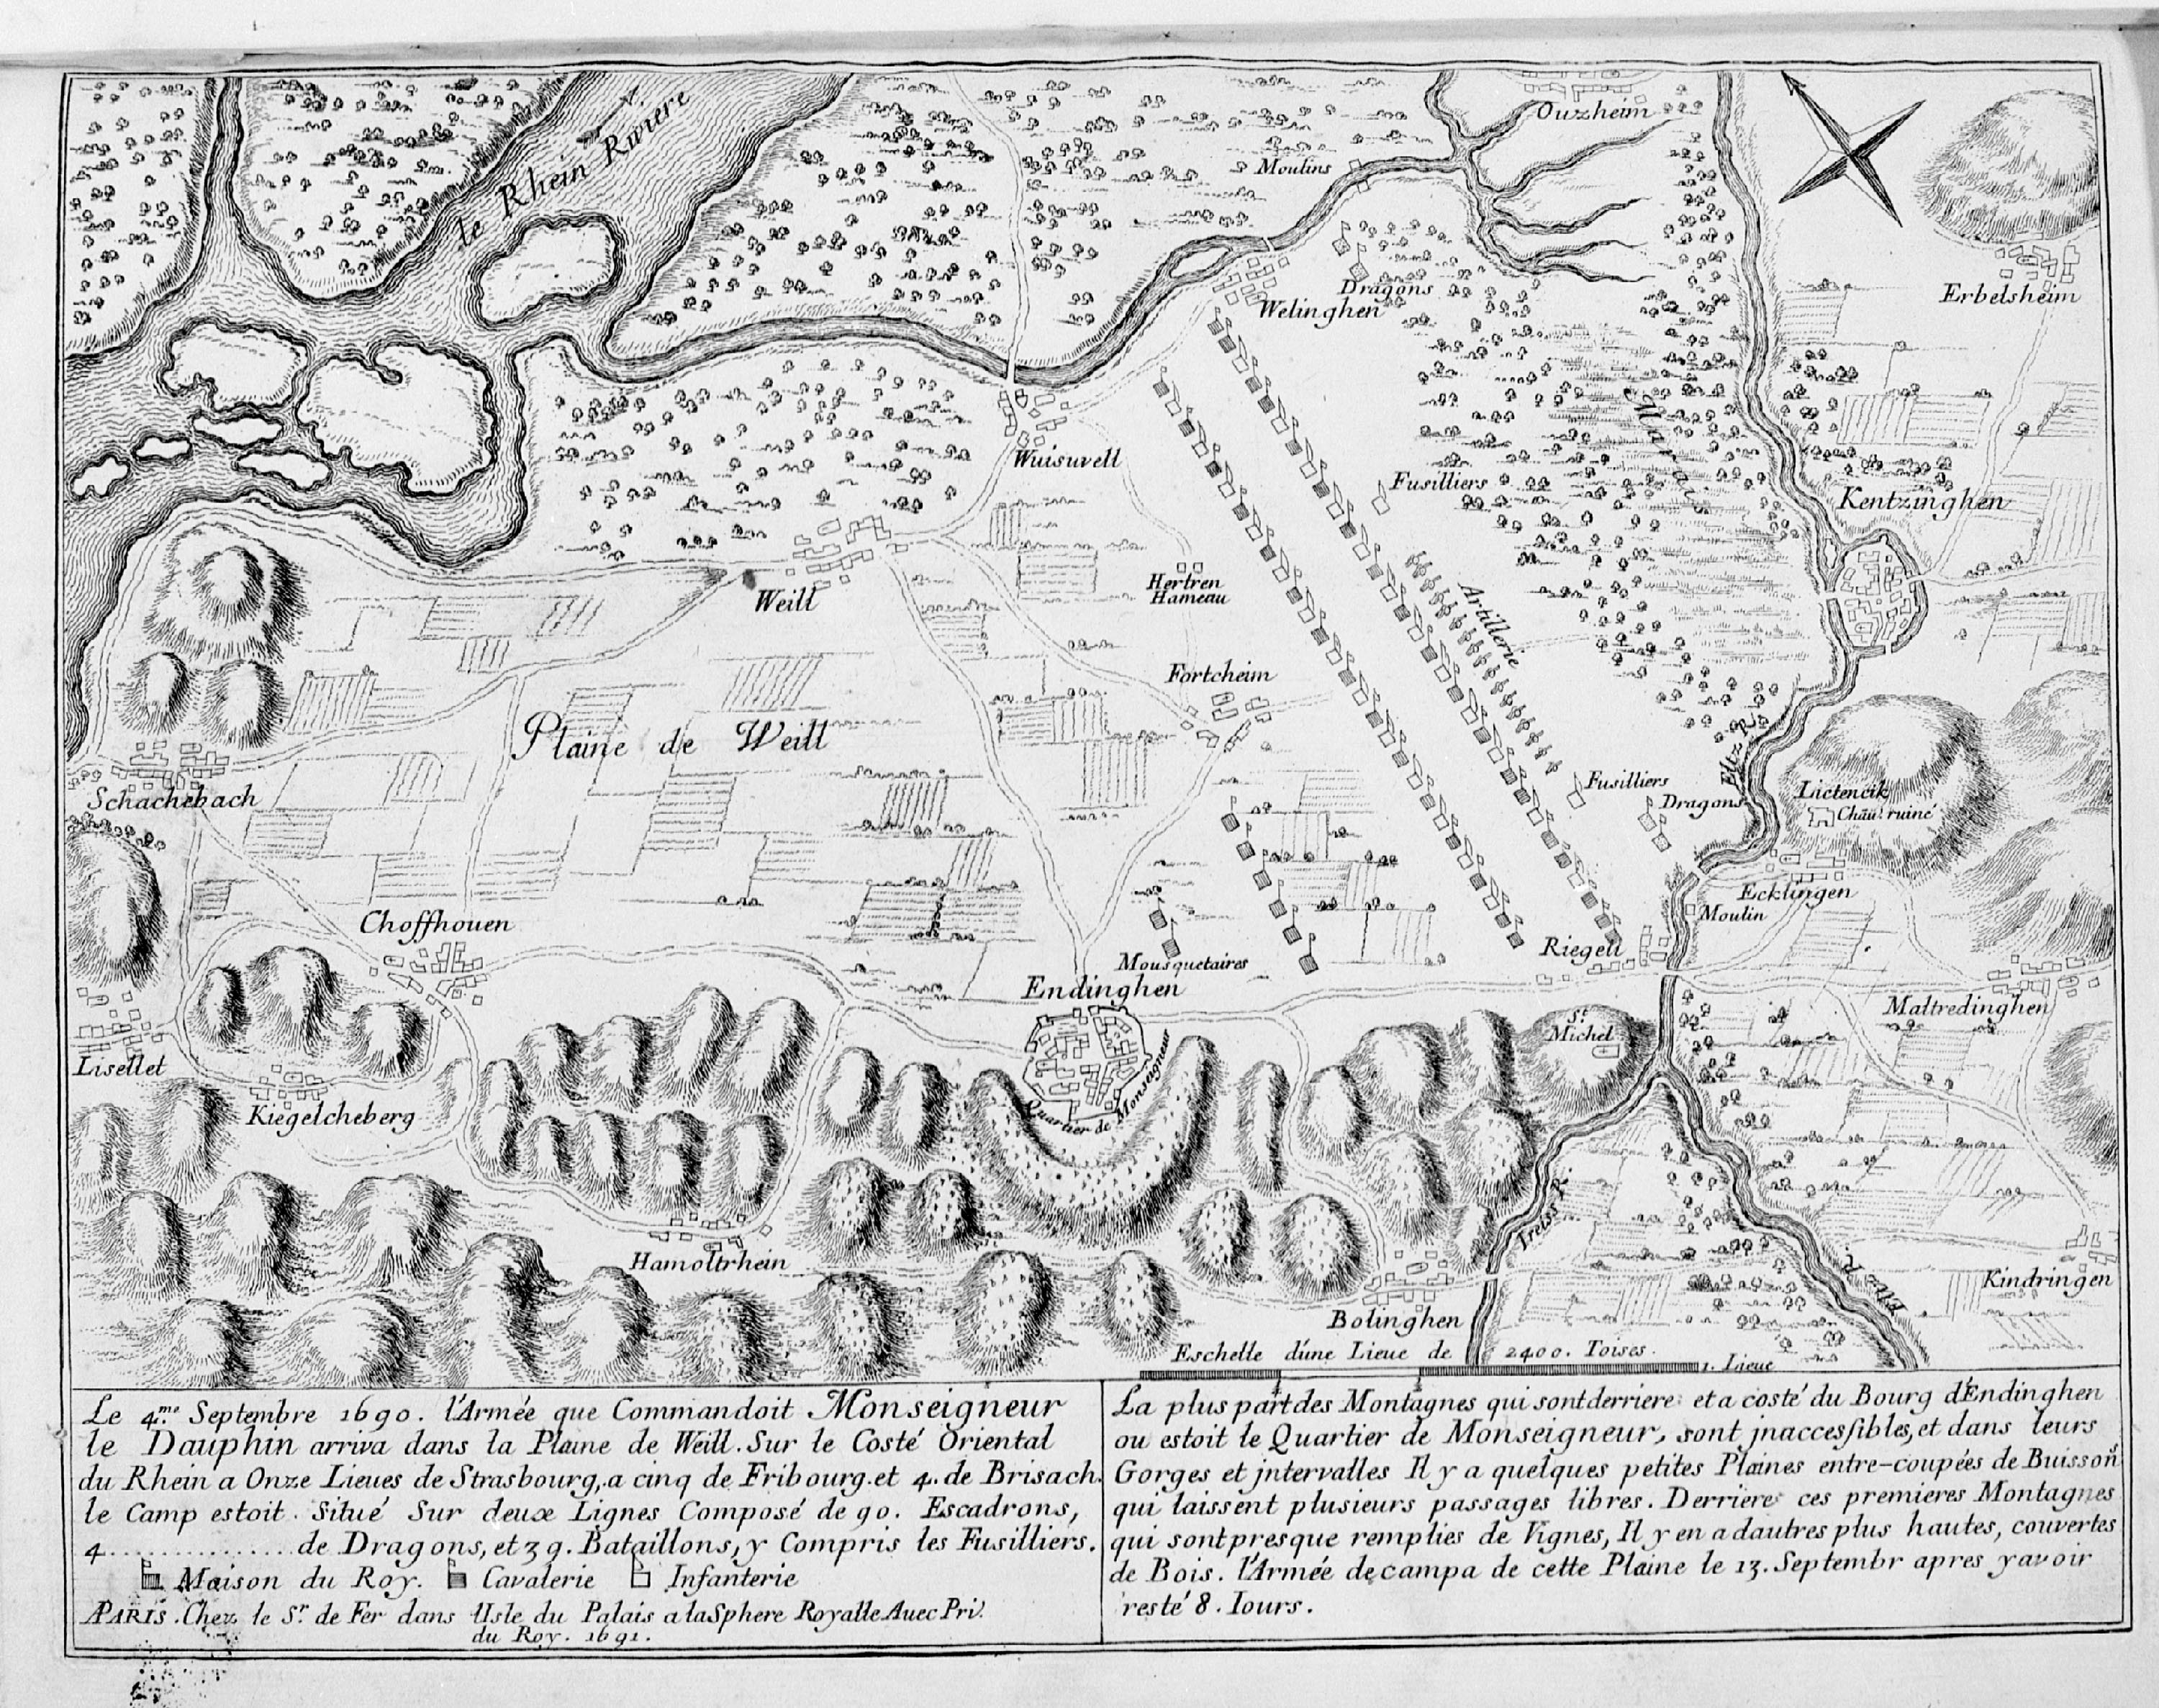 le Rhein Riviere
Ouzheim
Moulins
Dragons
Welinghen
Erbelsheim
Wuisuvell
Fusilliers
Marais
Kentzinghen
Hertren
Hameau
Weill
Artillerie
Fortcheim
Plaine de Weill
Eltz R.
Fusilliers
Dragons
Lictencik
Chāu. ruiné
Schachebach
Ecklingen
Moulin
Choffhouen
Riegell
Mousquetaires
Endinghen
Maltredinghen
St.
Michel
Quartier de Monseigneur
Lisellet
Kiegelcheberg
Treiss R.
Hamoltrhein
Eltz R.
Kindringen
Bolinghen
Eschelle d'une Lieue de 2400. Toises.
1. Lieue
Le 4.me Septembre 1690. l'Armée que Commandoit Monseigneur
le Dauphin arriva dans la Plaine de Weill. Sur le Costé Oriental
du Rhein a Onze Lieues de Strasbourg, a cinq de Fribourg. et 4. de Brisach.
le Camp estoit Situé Sur deux Lignes Composé de 90. Escadrons,
4.............. de Dragons, et 39. Bataillons, y Compris les Fusilliers.
Maison du Roy. Cavalerie Infanterie
PARIS. Chez le Sr. de Fer dans l'Isle du Palais a la Sphere Royalle Auec Pri.
du Roy. 1691.
La plus part des Montagnes qui sont derriere et a costé du Bourg d'Endinghen
ou estoit le Quartier de Monseigneur, sont jnaccessibles, et dans leurs
Gorges et jntervalles Il y a quelques petites Plaines entre-coupées de Buissons
qui laissent plusieurs passages libres. Derriere ces premieres Montagnes
qui sont presque remplies de Vignes, Il y en a dautres plus hautes, couvertes
de Bois. l'Armée decampa de cette Plaine le 13. Septembr apres y avoir
resté 8. Iours.